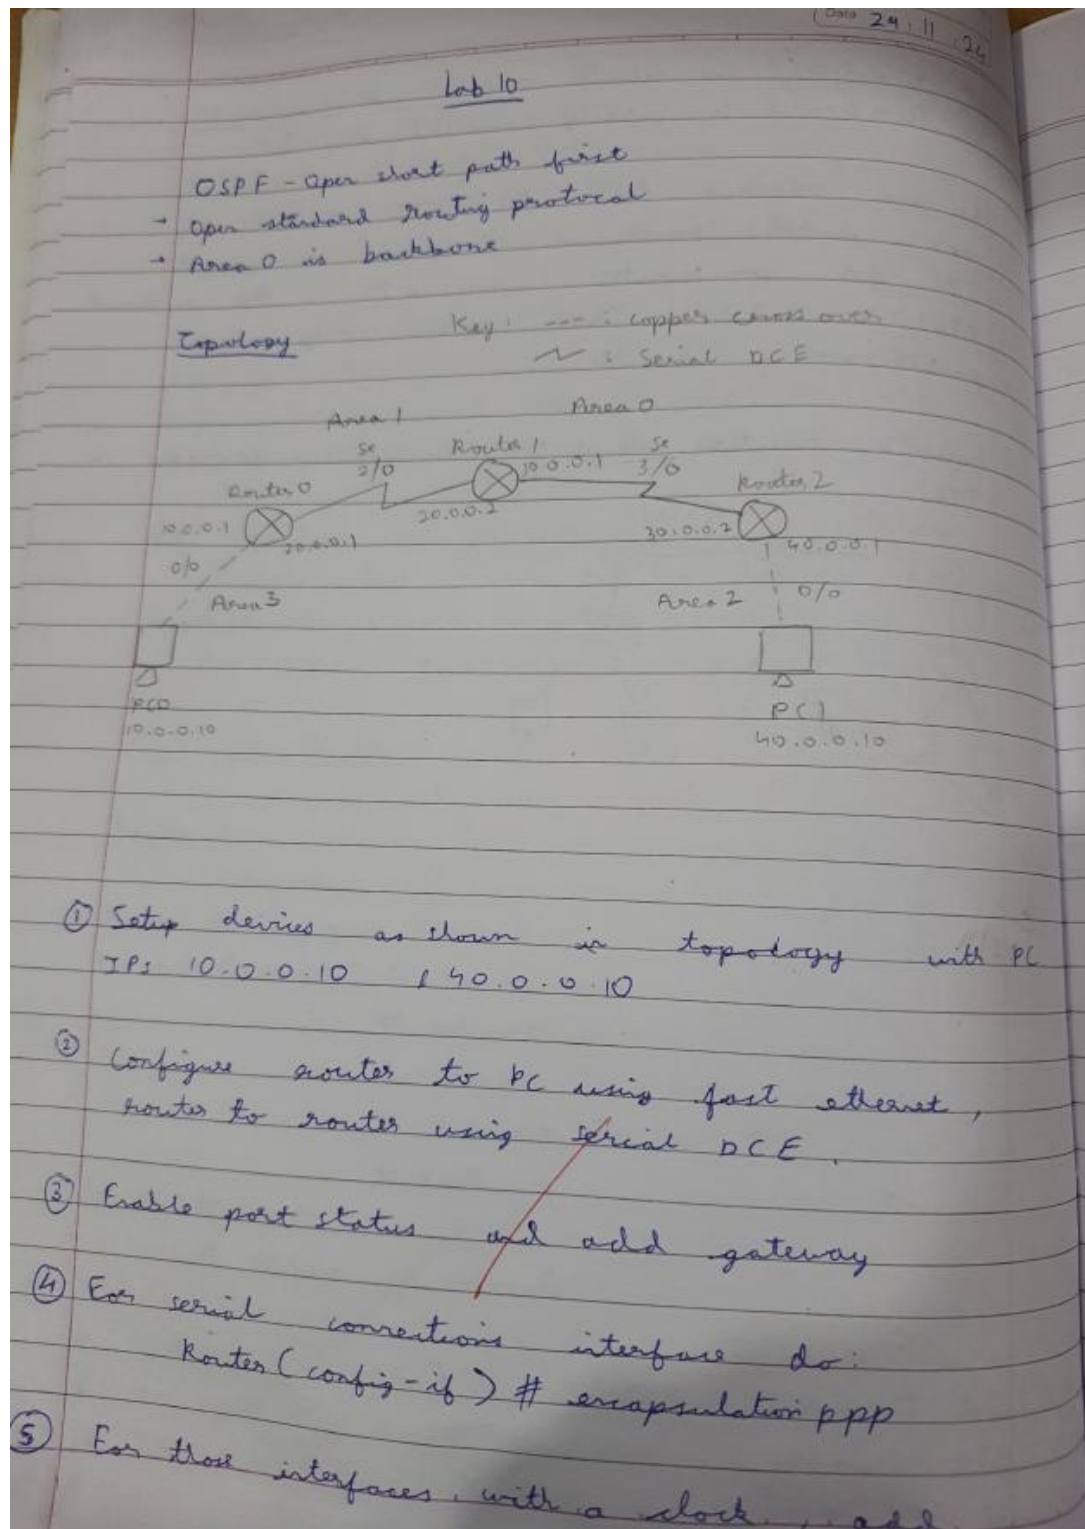 Date 24.11.24
Lab 10
OSPF - Open short path first
→ Open standard routing protocal
→ Area 0 is backbone
Topology
Key: --- : copper cross over
: Serial DCE
Area 1 Area 0
Se Router 1 Se
2/0 30.0.0.1 3/0
Router 0 Router 2
10.0.0.1 20.0.0.2 30.0.0.2
20.0.0.1 40.0.0.1
0/0 0/0
Area 3 Area 2
PC0 PC1
10.0.0.10 40.0.0.10
① Setup devices as shown in topology with PC
IPs 10.0.0.10 & 40.0.0.10
② Configure router to PC using fast ethernet,
router to router using serial DCE.
③ Enable port status and add gateway
④ For serial connections interface do:
Router (config-if) # encapsulation ppp
⑤ For those interfaces, with a clock, add